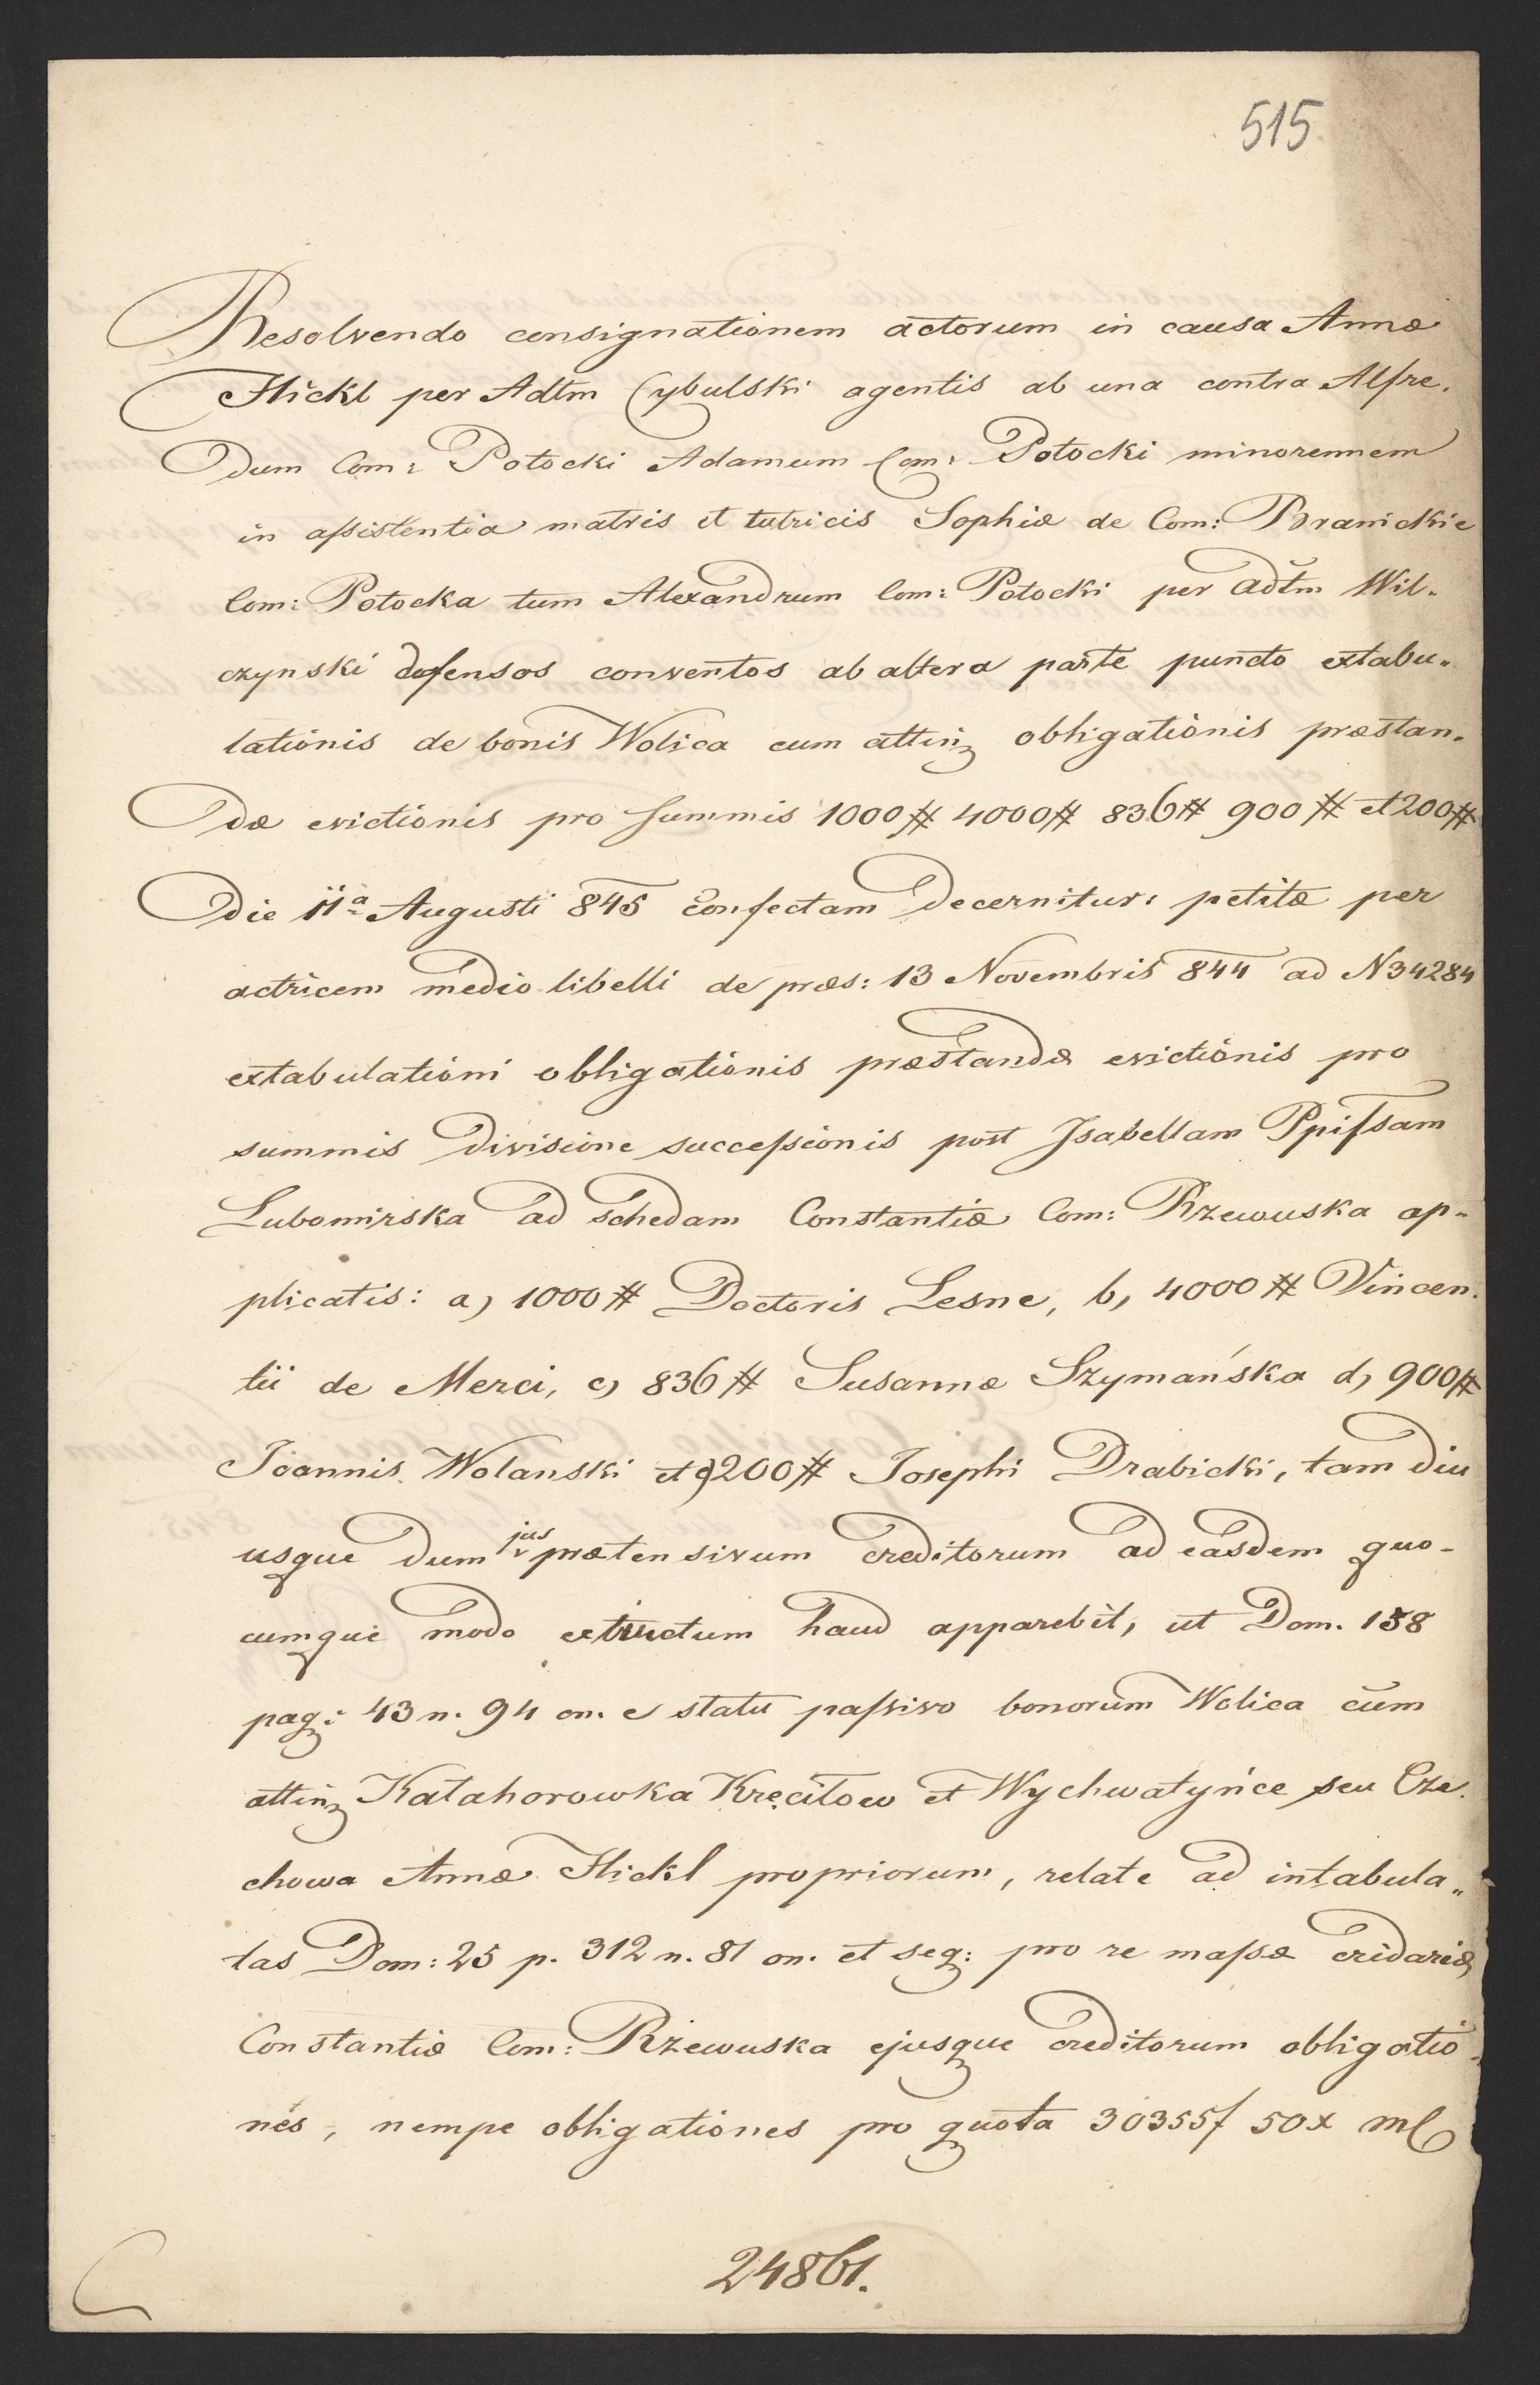 515.
Resolvendo consignationem actorum in causa Annæ
Hickl per Adtm Cybulski agentis ab una contra Alfre.
dum Com: Potocki Adamum Com: Potocki minorennem
in assistentia matris et tutricis Sophiæ de Com: Branickie
Com: Potocka tum Alexandrum Com: Potocki per Adtm Wil.
czynski defensos conventos ab altera parte puncto extabu„
lationis de bonis Wolica cum attin obligationis præstan.
dæ evictionis pro summis 1000# 4000# 836# 900# et 200#
die 11a Augusti 845 confectam decernitur: petitæ per
actricem medio libelli de præs: 13 Novembris 844 ad N34284
extabulationi obligationis præstandæ evictionis pro
summis divisione successionis post Isabellam Ppissam
Lubomirska ad schedam Constantiæ Com: Rzewuska ap-
plicatis: a) 1000# Doctoris Lesne, b, 4000# Vincen.
tii de Merci, c) 836# Susannæ Szymańska d, 900#
Joannis Wolanski et e) 200# Josephi Drabicki, tam diu
usque dum jus prætensivum creditorum ad easdem quo-
cumque modo extinctum haud apparebit, ut Dom. 158
pag: 43 n. 94 on. e statu passivo bonorum Wolica cum
attin Katahorowka Kręcitow et Wychwatyńce seu Cze.
chowa Annæ Hickl propriorum, relate ad intabula„
tas Dom: 25 p. 312 n. 81 on. et seq: pro re massæ cridariæ
Constantiæ Com: Rżewuska ejusque creditorum obligatio-
nes, nempe obligationes pro quota 30355f 50x
24861.